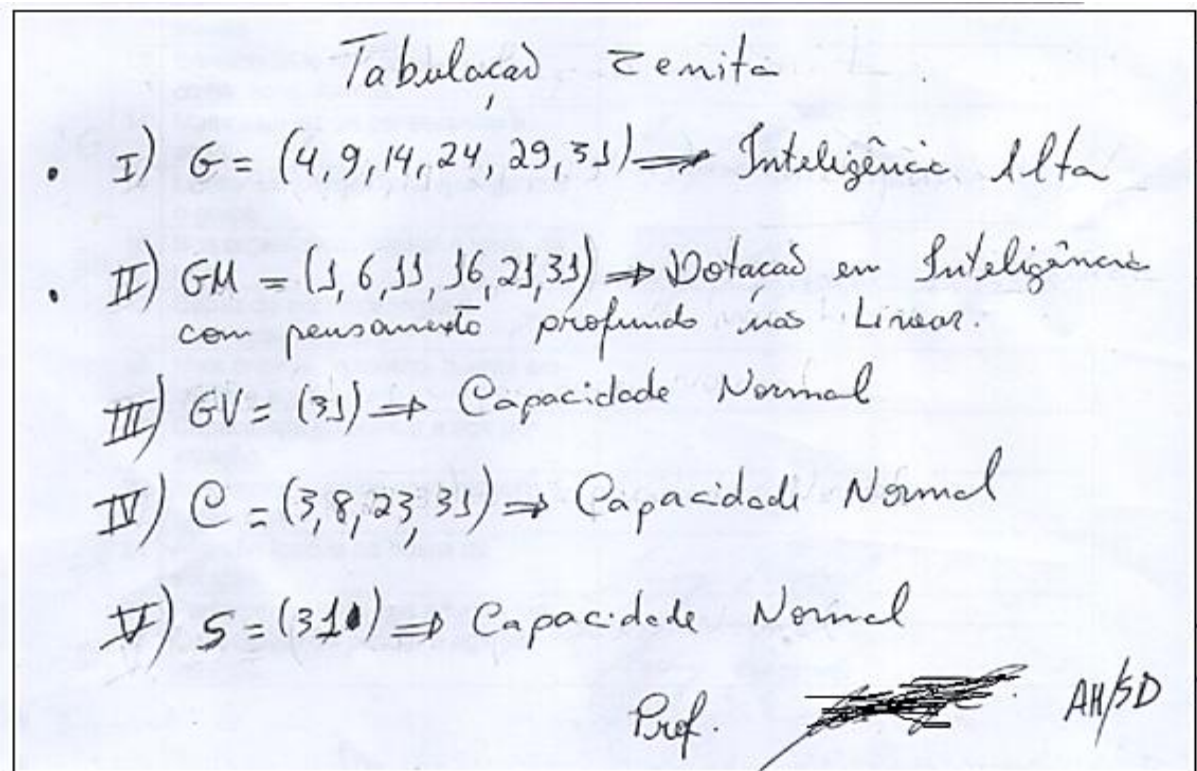 Tabulação Zenita
• I) G = (4, 9, 14, 24, 29, 31) ⇒ Inteligência Alta
• II) GM = (1, 6, 11, 16, 21, 31) ⇒ Dotação em Inteligência
com pensamento profundo mas Linear.
III) GV = (31) ⇒ Capacidade Normal
IV) C = (3, 8, 23, 31) ⇒ Capacidade Normal
V) S = (31) ⇒ Capacidade Normal
Prof. AH/SD